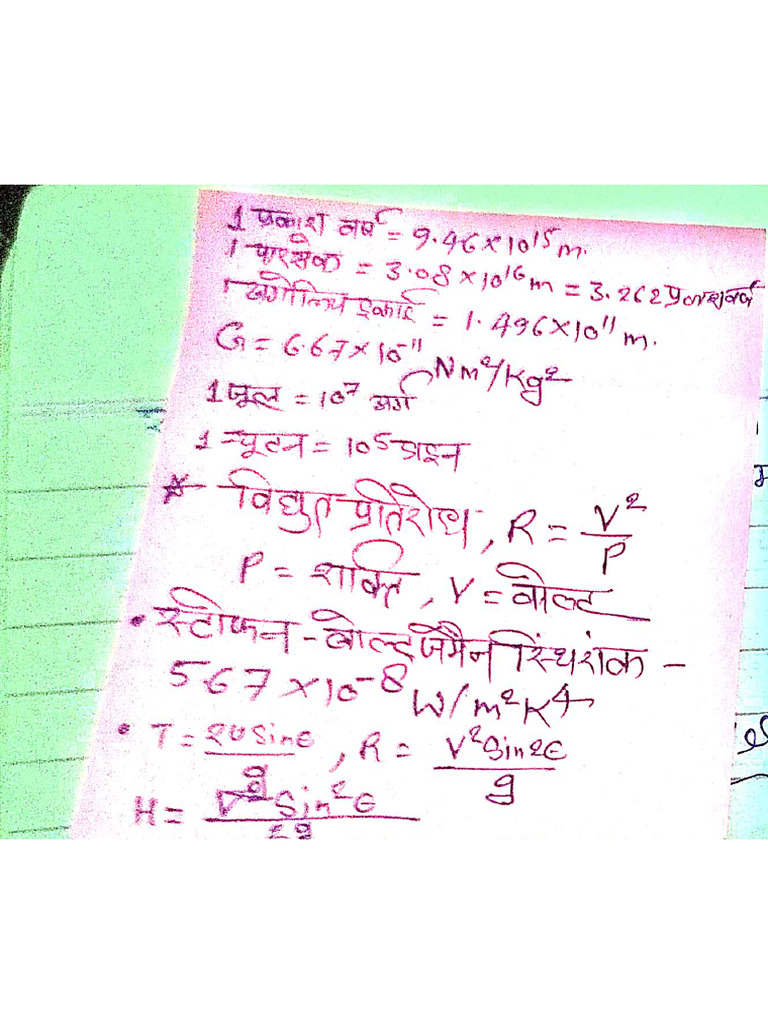 1 प्रकाश वर्ष = 9.46×10¹⁵ m.
1 पारसेक = 3.08×10¹⁶ m = 3.262 प्रकाशवर्ष
1 खगोलिय इकाई = 1.496×10¹¹ m.
G = 6.67×10⁻¹¹ Nm²/Kg²
1 जूल = 10⁷ अर्ग
1 न्यूटन = 10⁵ डाइन
* विद्युत प्रतिरोध, R = V²/P
P = शक्ति, V = वोल्ट
• स्टीफन - बोल्टजमैन स्थिरांक -
5.67×10⁻⁸ W/m²K⁴
• T = 2U Sinθ/g, R = V² Sin2θ/g
H = V² Sin²θ/2g